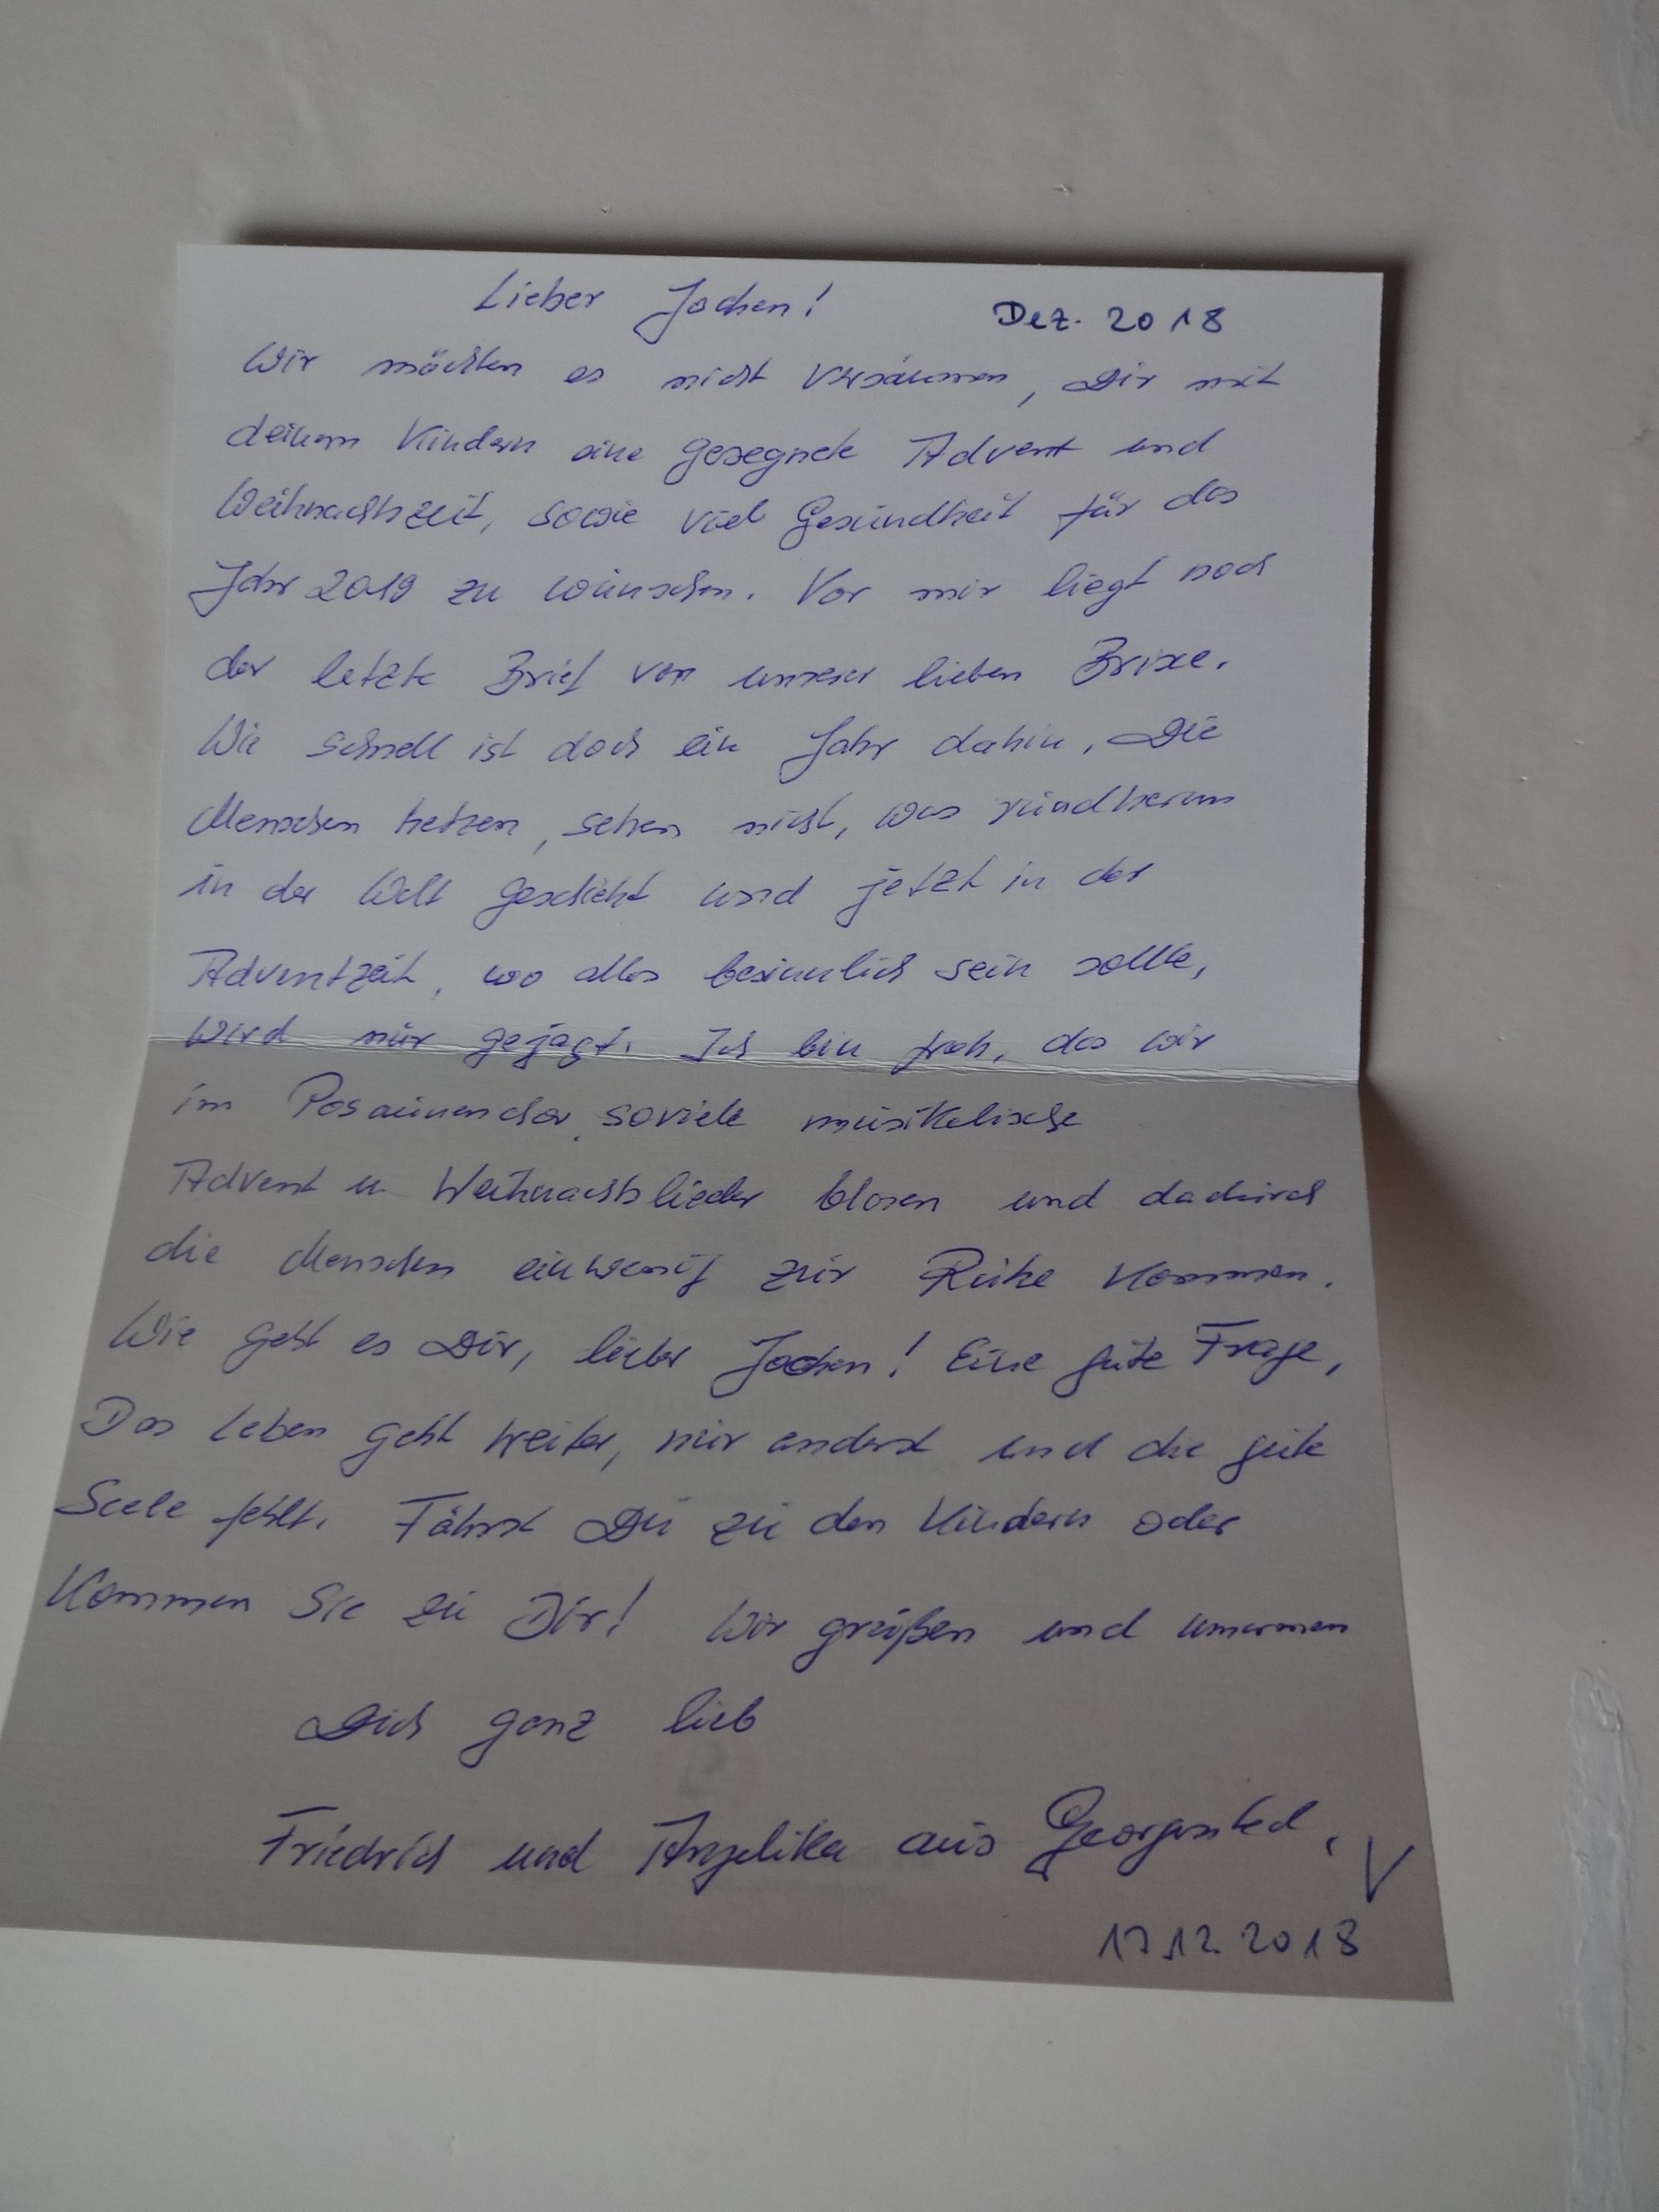 Lieber Jochen!
Dez. 2018
Wir möchten es nicht versäumen, Dir mit
deinen Kindern eine gesegnete Advent und
Weihnachtszeit, sowie viel Gesundheit für das
Jahr 2019 zu wünschen. Vor mir liegt noch
der letzte Brief von unserer lieben
Wie schnell ist doch ein Jahr dahin. Die
Menschen hetzen, sehen nicht, was rundherum
in der Welt geschieht und jetzt in der
Adventzeit, wo alles besinnlich sein sollte,
wird nur gejagt. Ich bin froh, das wir
im Posaunenchor soviele musikalische
Advent u. Weihnachtslieder blasen und dadurch
die Menschen einwenig zur Ruhe kommen.
Wie geht es Dir, lieber Jochen! Eine gute Frage,
Das Leben geht weiter, nur anderst und die gute
Seele fehlt. Fährst Du zu den Kindern oder
Kommen Sie zu Dir! Wir grüßen und umarmen
Dich ganz lieb
Friedrich und Angelika aus
17.12.2018